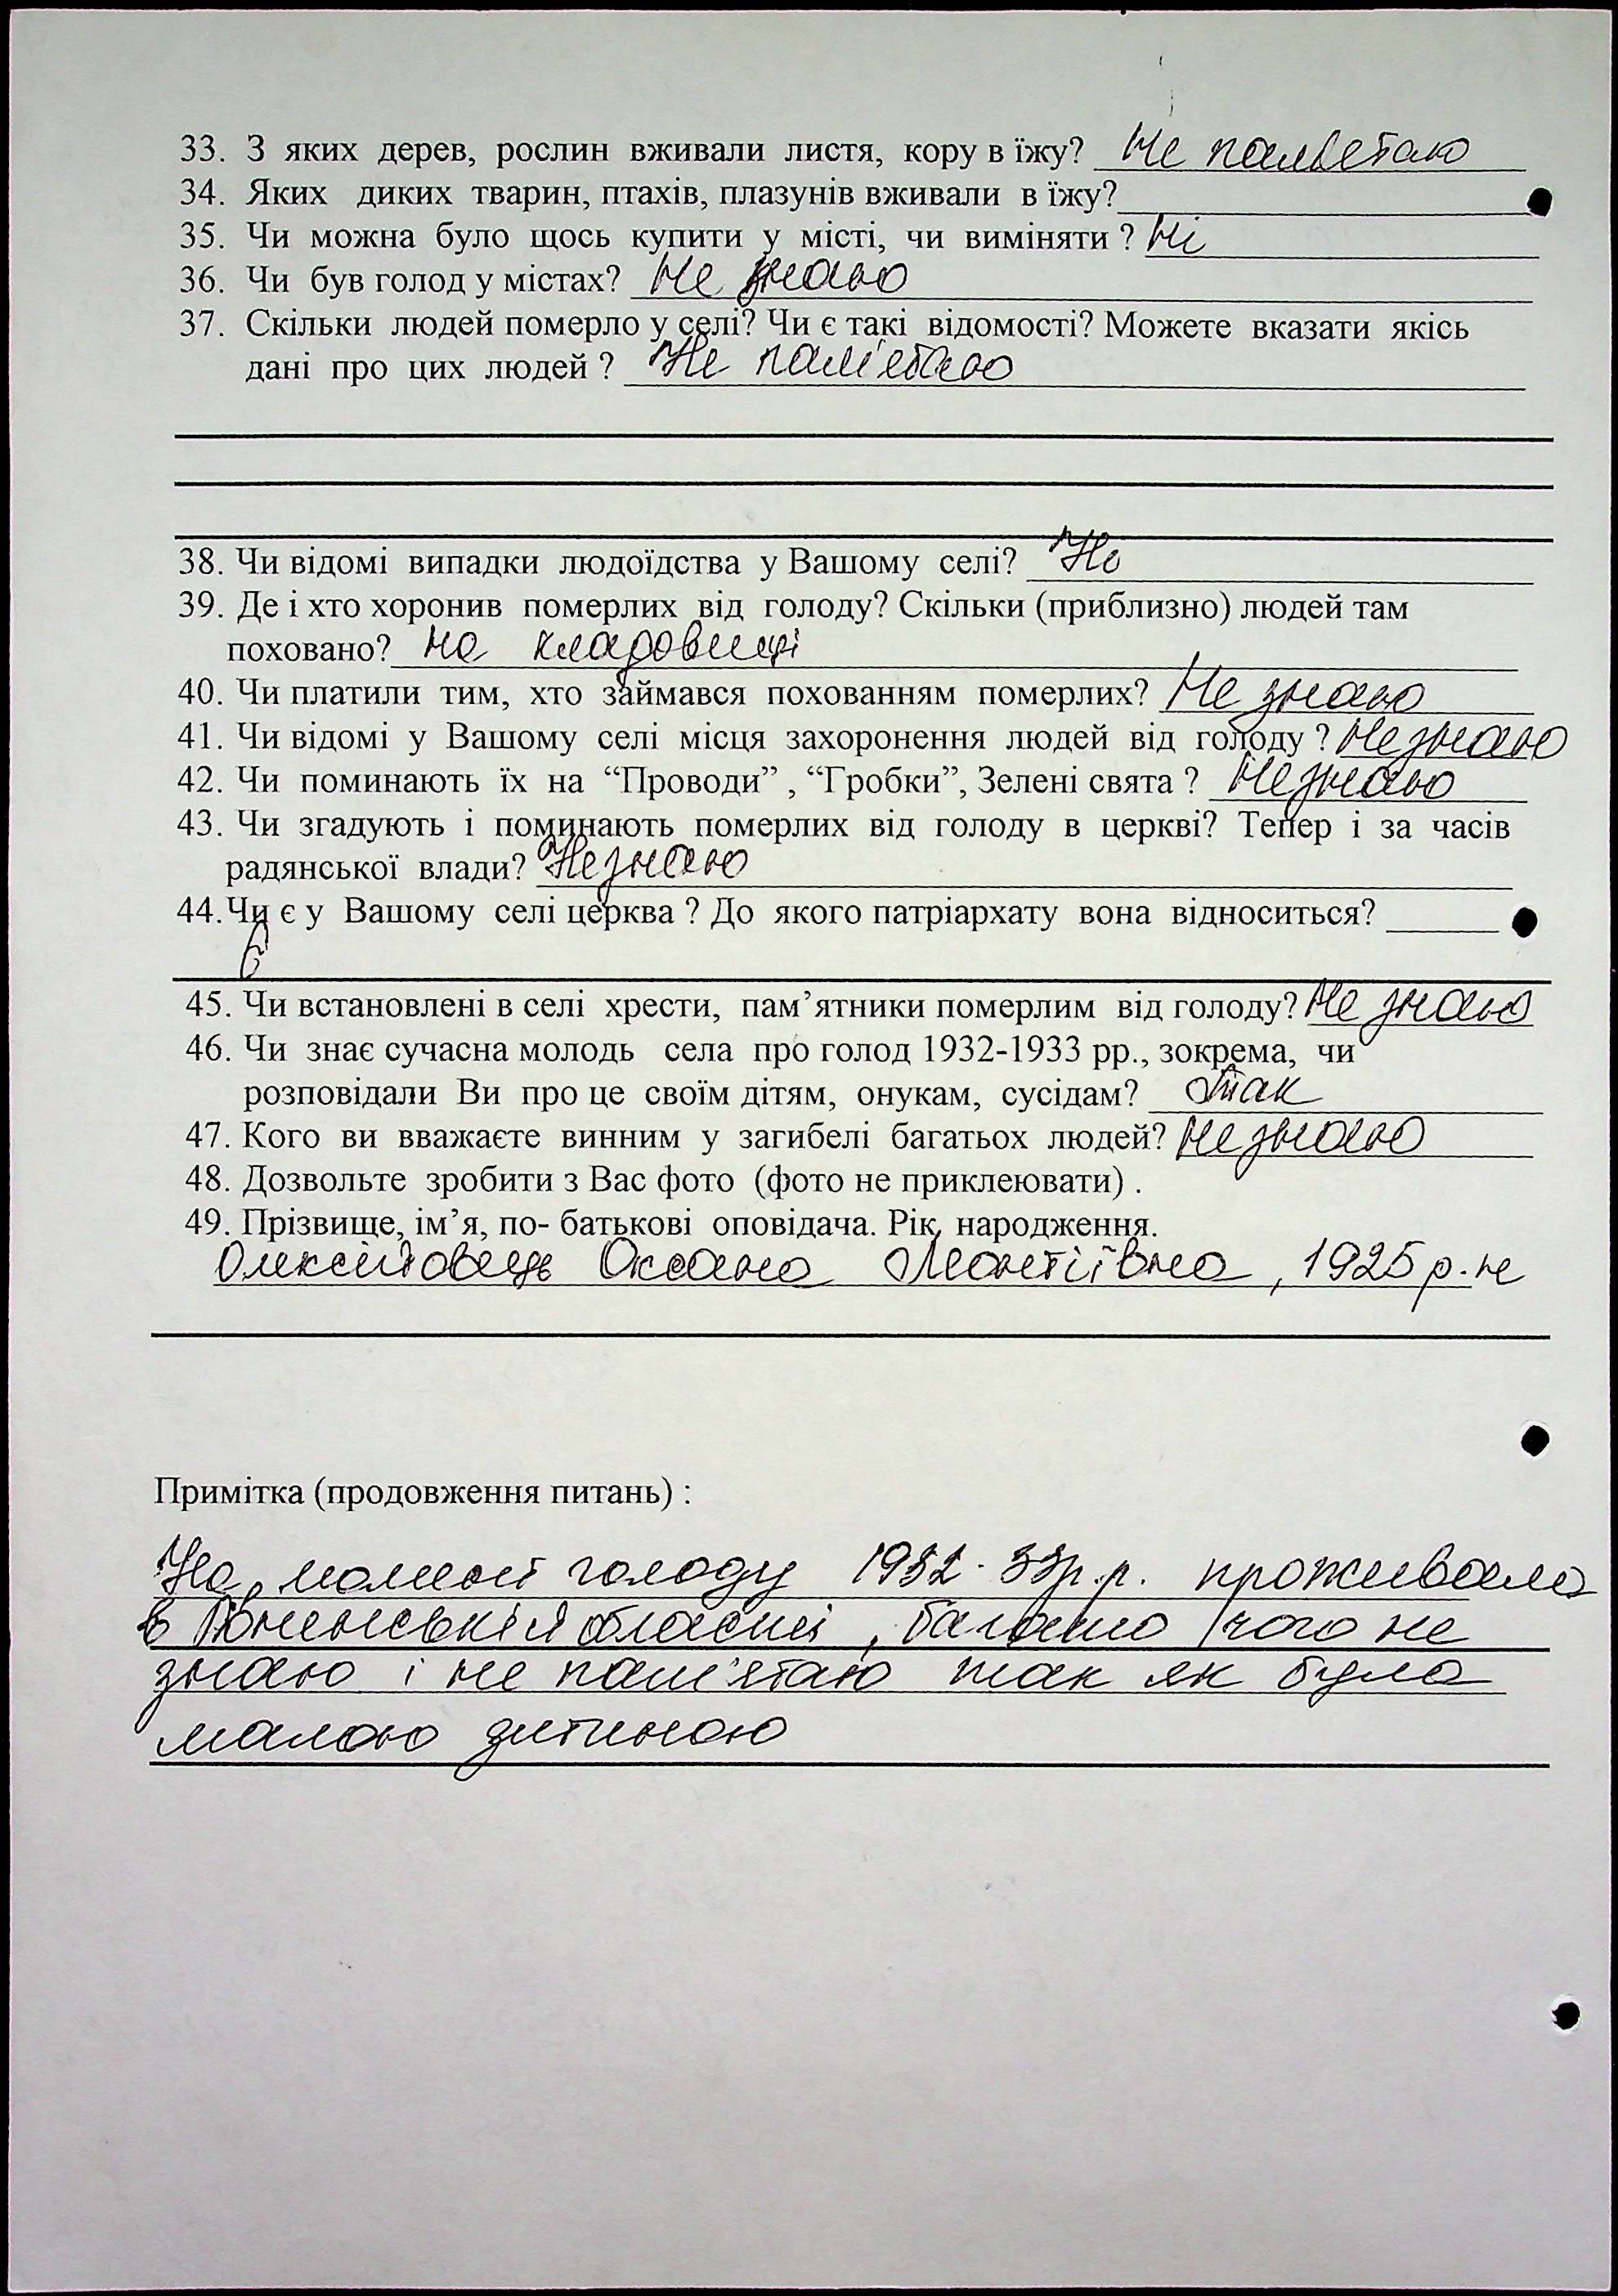 33. З яких дерев, рослин вживали листя, кору в їжу? Не пам'ятаю
34. Яких диких тварин, птахів, плазунів вживали в їжу?
35. Чи можна було щось купити у місті, чи виміняти ? Ні
36. Чи був голод у містах? Не знаю
37. Скільки людей померло у селі? Чи є такі відомості? Можете вказати якісь
дані про цих людей ? Не пам'ятаю
38. Чи відомі випадки людоїдства у Вашому селі? Ні
39. Де і хто хоронив померлих від голоду? Скільки (приблизно) людей там
поховано? на кладовищі
40. Чи платили тим, хто займався похованням померлих? Не знаю
41. Чи відомі у Вашому селі місця захоронення людей від голоду ? Не знаю
42. Чи поминають їх на “Проводи” , “Гробки”, Зелені свята ? Не знаю
43. Чи згадують і поминають померлих від голоду в церкві? Тепер і за часів
радянської влади? Не знаю
44.Чи є у Вашому селі церква ? До якого патріархату вона відноситься?
Є
45. Чи встановлені в селі хрести, пам’ятники померлим від голоду? Не знаю
46. Чи знає сучасна молодь села про голод 1932-1933 рр., зокрема, чи
розповідали Ви про це своїм дітям, онукам, сусідам? Так
47. Кого ви вважаєте винним у загибелі багатьох людей? Не знаю
48. Дозвольте зробити з Вас фото (фото не приклеювати) .
49. Прізвище, ім’я, по- батькові оповідача. Рік народження.
Оксана , 1925 р. н
Примітка (продовження питань) :
На момент голоду 1932-33р.р. проживала
в Рівненській області, багато чого не
знаю і не пам'ятаю так як була
малою дитиною